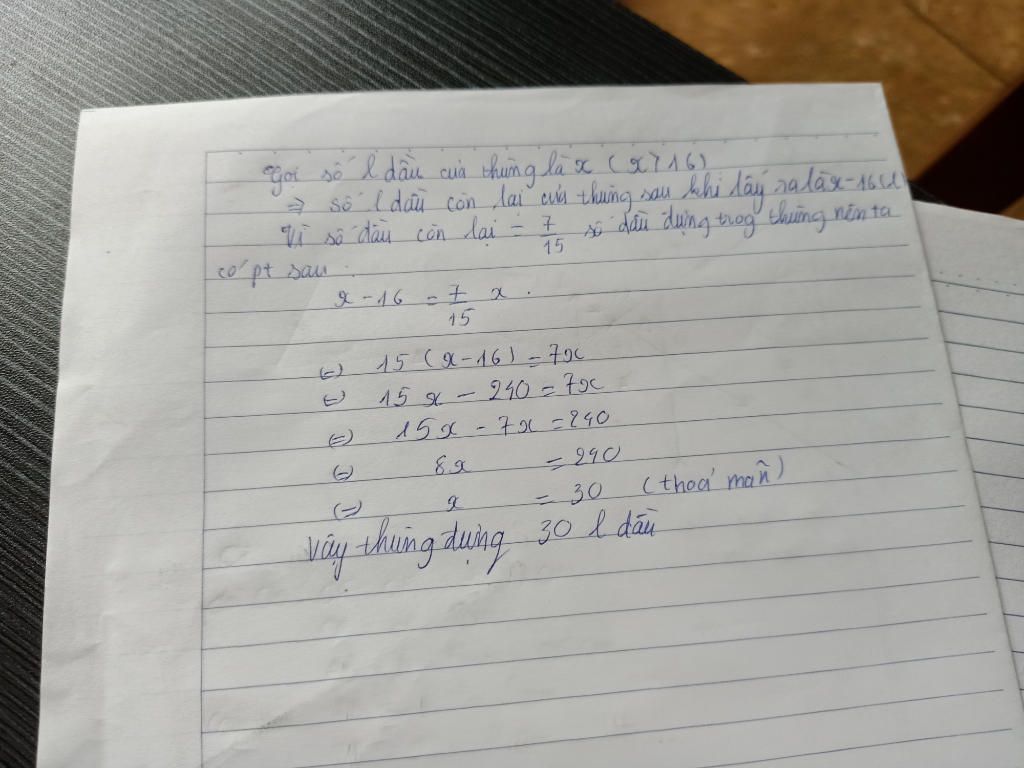 Gọi số l dầu của thùng là x (x > 16)
⇒ số l dầu còn lại của thùng sau khi lấy ra là x-16(l)
Vì số dầu còn lại = 7/15 số dầu đựng trog thùng nên ta
có pt sau :
x - 16 = 7/15 x .
(=) 15 (x-16) = 7x
(=) 15x - 240 = 7x
(=) 15x - 7x = 240
(=) 8x = 240
(=) x = 30 (thoả mãn)
Vậy thùng đựng 30 l dầu